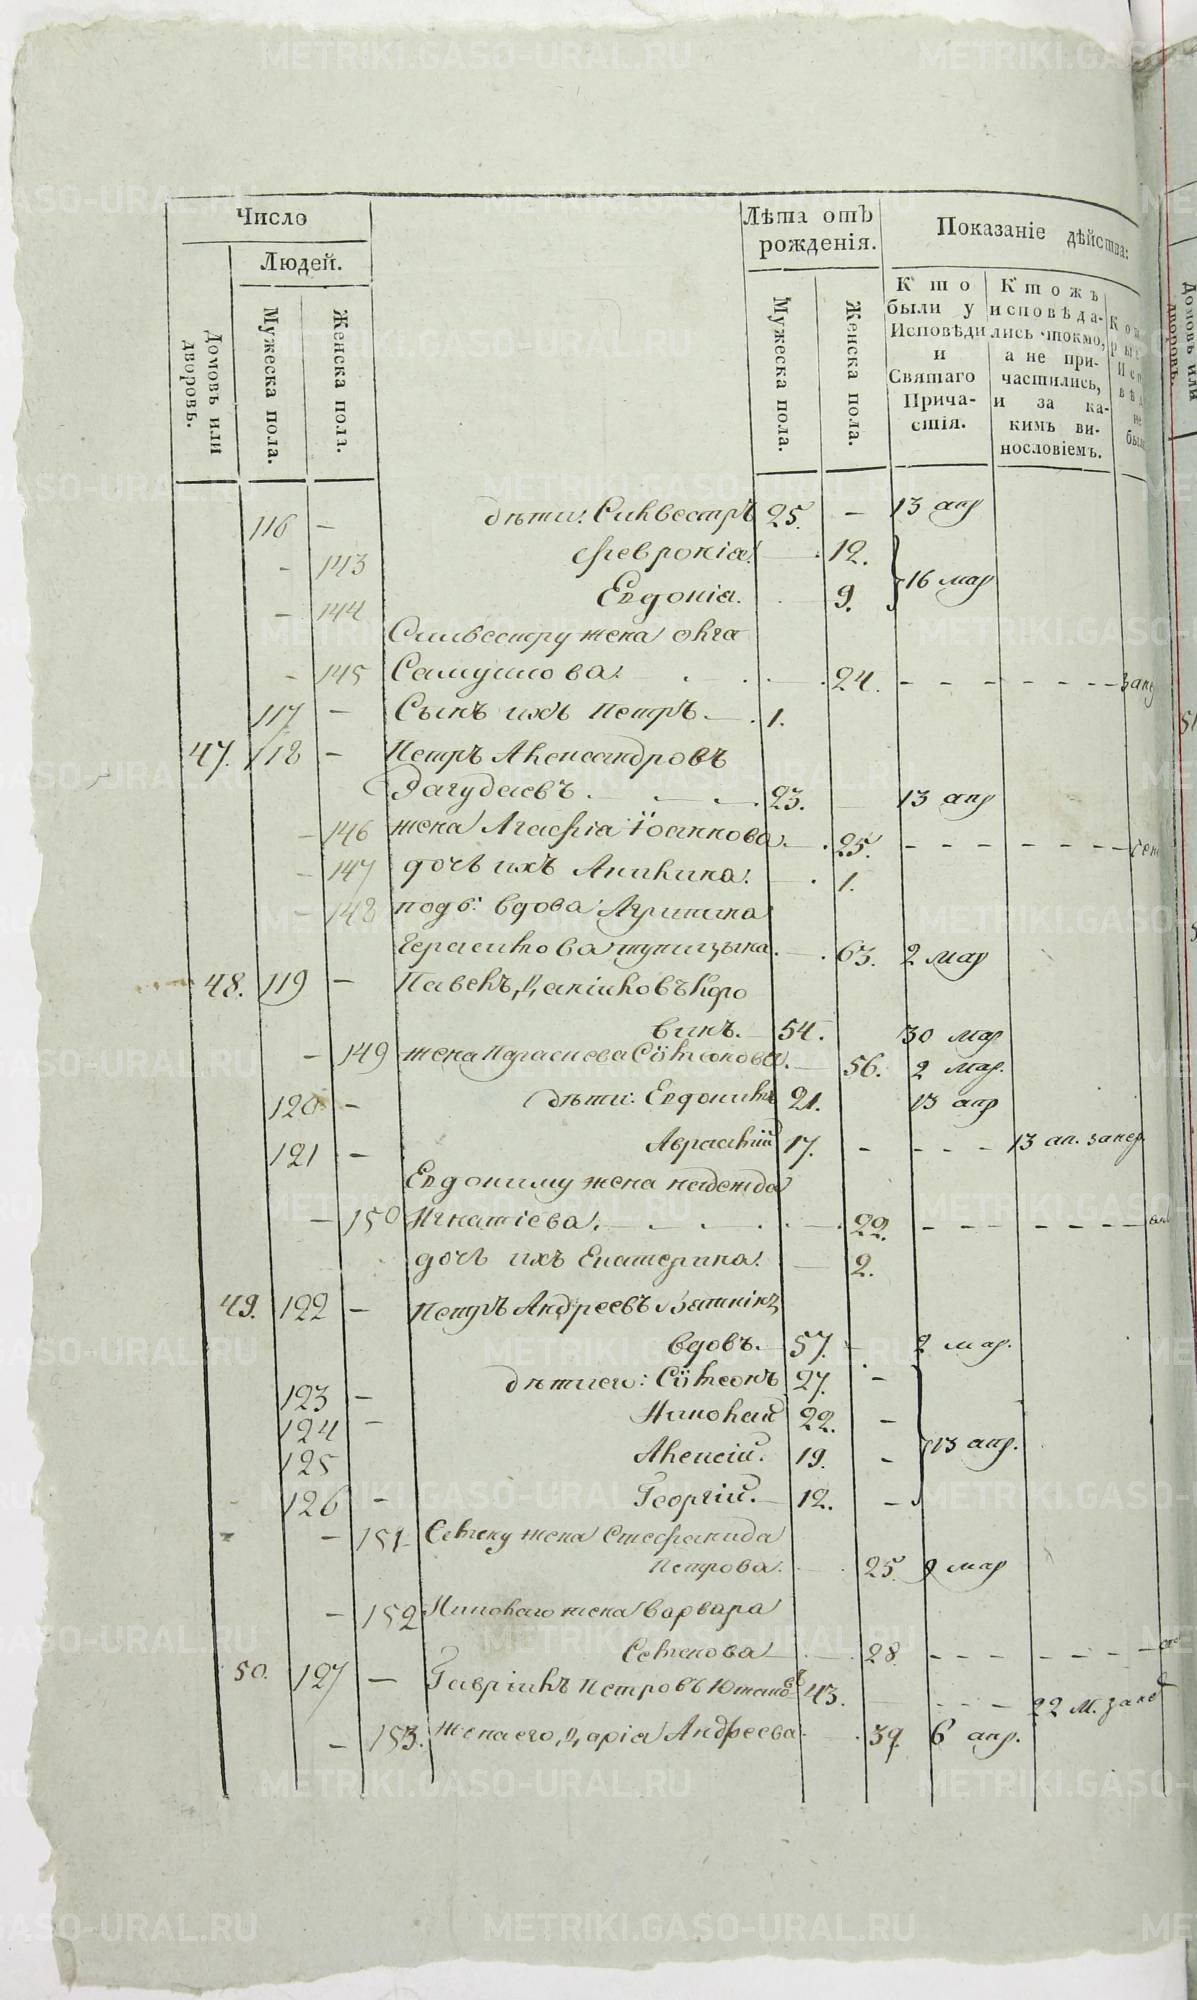 Число
Людей.
Домовъ или дворовъ.
Мужеска пола.
Женска пола.
Лѣта отъ рожденія.
Мужеска пола.
Женска пола.
Показаніе дѣйства:
Кто были у Исповѣди и Святаго Причастія.
Ктожъ исповѣдались токмо, а не причастились, и за какимъ винословіемъ.
116 – дѣти: Силвестръ 25. – 13 апр
– 143 Феvронія. 12.
– 144 Евдокія. 9. 16 мар
Силвестру жена Олга
– 145 Самуилова. 24.
117 – Сынъ ихъ Петръ 1.
47. 118 – Петръ Александровъ
23. 13 апр
– 146 жена Агафіа Іоаннова 25.
– 147 дочь ихъ Акилина. 1.
– 148 подв: вдова Агрипина
Герасимова 63. 2 мар
48. 119 – Павелъ Даніиловъ Коро
винъ. 54. 30 мар
– 149 жена Параскева Сѵмеонова. 56. 2 мар.
120 – дѣти: Евдокимъ 21. 13 апр
121 – 17. – 13 ап.
Евдокиму жена Надежда
– 150 Игнатіева. 22.
дочь ихъ Екатерина. 2.
49. 122 – Петръ Андреевъ
вдовъ. 57. – 2 мар.
123 – дѣти его: Сѵмеонъ 27. –
124 – Николай 22. –
125 Алексій. 19. – 13 апр.
126 – Георгій. 12. –
– 151 Семену жена Стефанида
Петрова. 25. 9 мар
– 152 Николаю жена Варвара
Семенова 28.
50. 127 – Гавріилъ Петровъ 43. 22 м.
– 153. Жена его Дарія Андреева 39. 6 апр.
METRIKI.GASO-URAL.RU